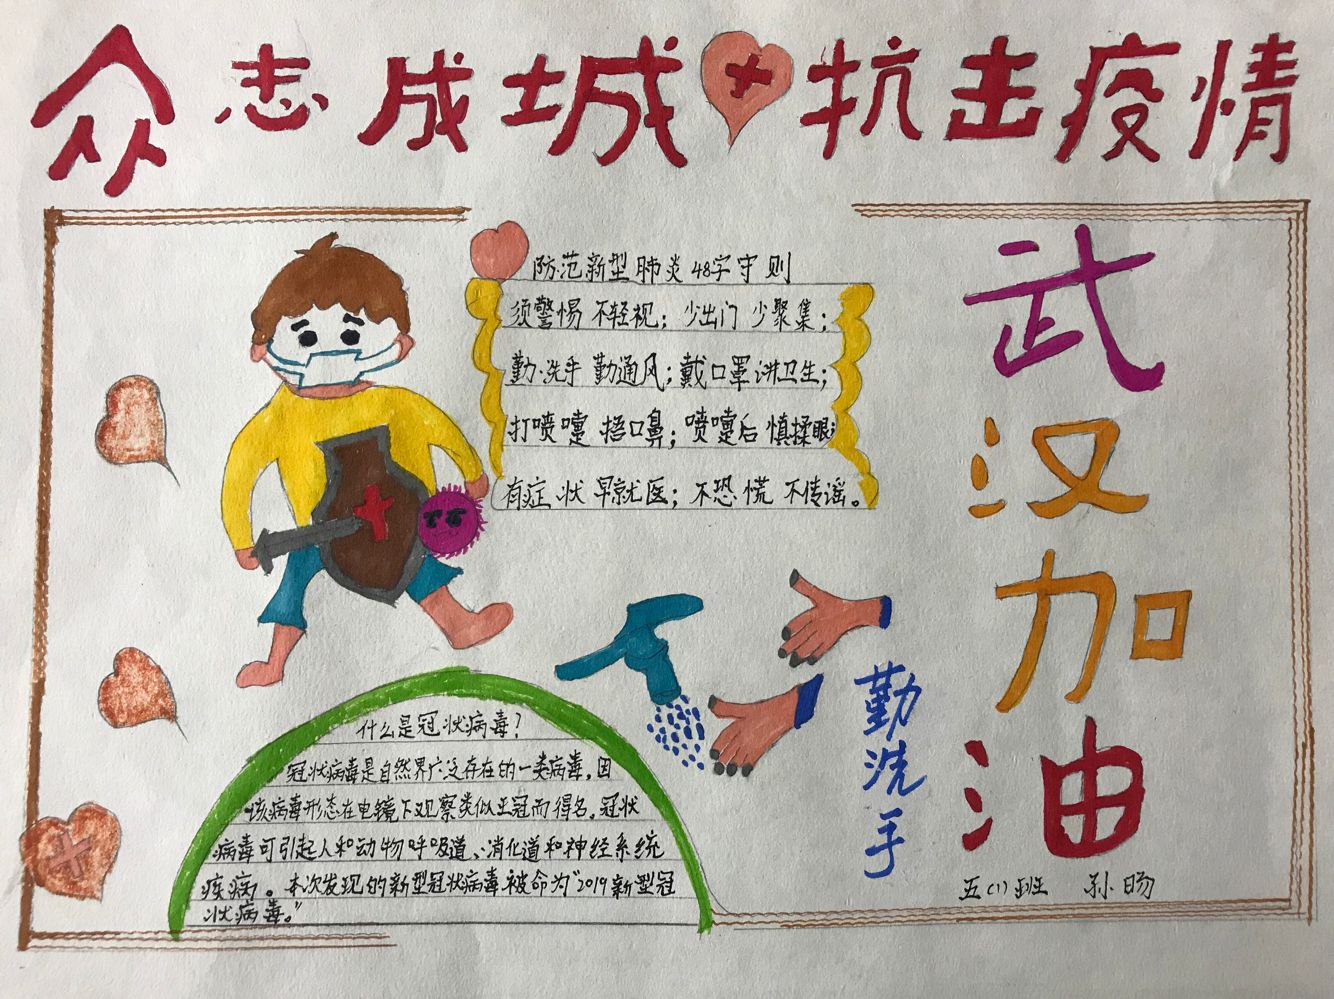 众志成城 抗击疫情
防范新型肺炎48字守则
须警惕 不轻视；少出门 少聚集；
勤洗手 勤通风；戴口罩 讲卫生；
打喷嚏 捂口鼻；喷嚏后 慎揉眼；
有症状 早就医；不恐慌 不传谣。
武
汉
加
油
勤
洗
手
什么是冠状病毒？
冠状病毒是自然界广泛存在的一类病毒，因
该病毒形态在电镜下观察类似王冠而得名。冠状
病毒可引起人和动物呼吸道、消化道和神经系统
疾病。本次发现的新型冠状病毒被命为“2019新型冠
状病毒。”
五（1）班 孙旸